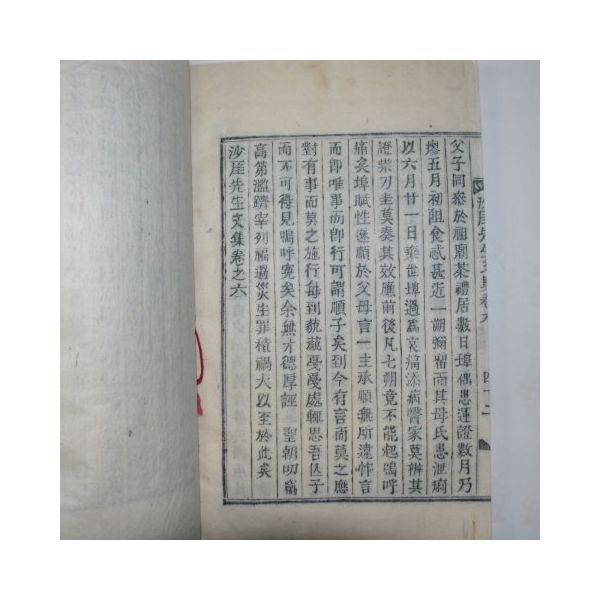 父子同參於祖廟茶禮居數日埠偶患運證數月乃
瘳五月初阻食感甚近一朔彌留而其母氏患泄痢
以六月廿一日棄世埠過爲哀痛添病醫家莫辨其
證柴刀圭莫奏其效應前後凡七朔竟不能起嗚呼
痛矣埠賦性遜順於父母言一主承順無所違忤言
而卽唯事而卽行可謂順子矣到今有言而莫之應
對有事而莫之施行每到藐藐憂憂處輒思吾仄子
而不可得見嗚呼寃矣余無才德厚誣聖朝叨竊
高第濫躋宰列福過災生罪積禍大以至於此矣
沙厓先生文集卷之六
沙厓先生文集卷六 四十二